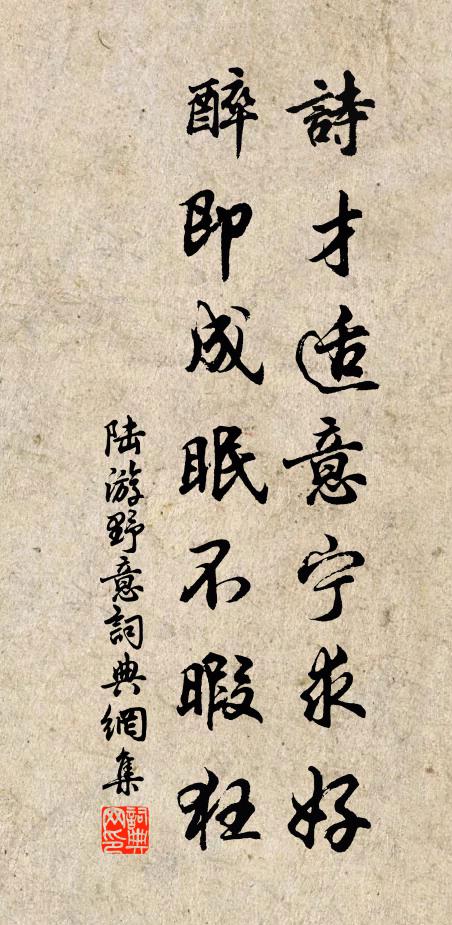 詩才适意宁求好
醉即成眠不暇狂
陆游野意詞典網集
詞典
网印